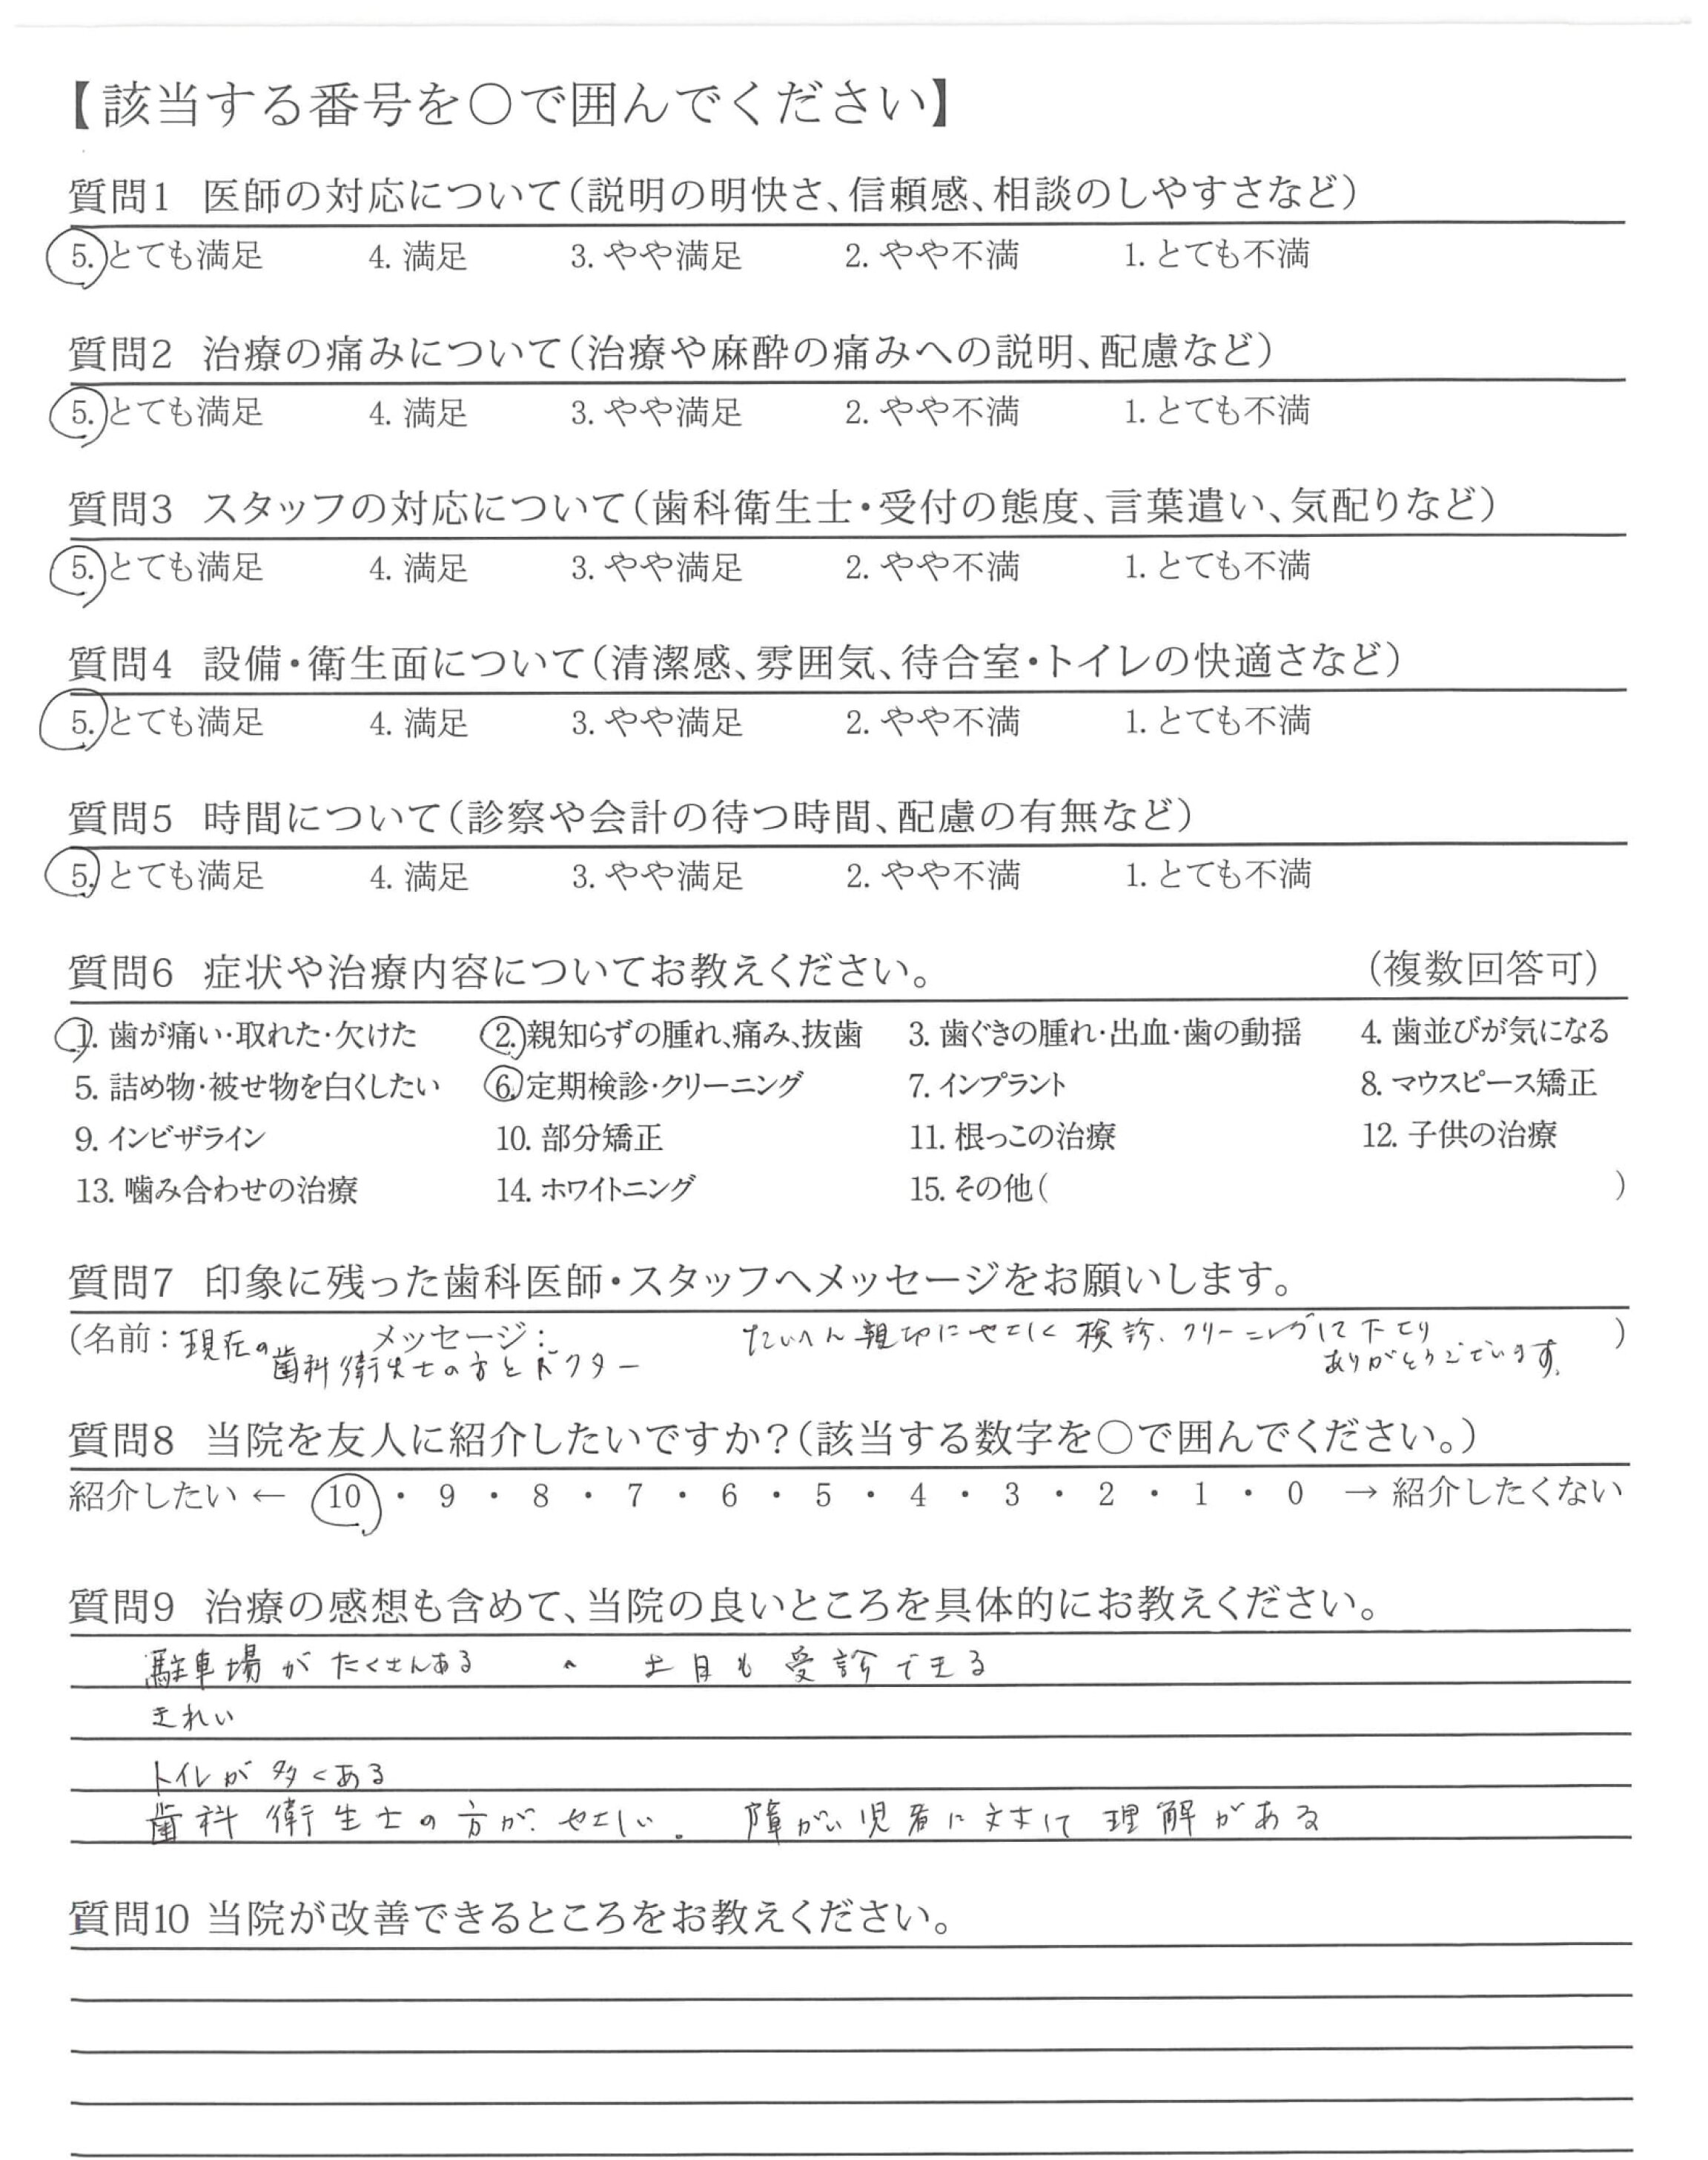 【該当する番号を○で囲んでください】
質問1 医師の対応について(説明の明快さ、信頼感、相談のしやすさなど)
5. とても満足 4. 満足 3. やや満足 2. やや不満 1. とても不満
質問2 治療の痛みについて(治療や麻酔の痛みへの説明、配慮など)
5. とても満足 4. 満足 3. やや満足 2. やや不満 1. とても不満
質問3 スタッフの対応について(歯科衛生士・受付の態度、言葉遣い、気配りなど)
5. とても満足 4. 満足 3. やや満足 2. やや不満 1. とても不満
質問4 設備・衛生面について(清潔感、雰囲気、待合室・トイレの快適さなど)
5. とても満足 4. 満足 3. やや満足 2. やや不満 1. とても不満
質問5 時間について(診察や会計の待つ時間、配慮の有無など)
5. とても満足 4. 満足 3. やや満足 2. やや不満 1. とても不満
質問6 症状や治療内容についてお教えください。 (複数回答可)
1. 歯が痛い・取れた・欠けた 2. 親知らずの腫れ、痛み、抜歯 3. 歯ぐきの腫れ・出血・歯の動揺 4. 歯並びが気になる
5. 詰め物・被せ物を白くしたい 6. 定期検診・クリーニング 7. インプラント 8. マウスピース矯正
9. インビザライン 10. 部分矯正 11. 根っこの治療 12. 子供の治療
13. 噛み合わせの治療 14. ホワイトニング 15. その他( )
質問7 印象に残った歯科医師・スタッフへメッセージをお願いします。
(名前：現在の メッセージ： たいへん親切にやさしく検診、クリーニングして下さり )
歯科衛生士の方とドクター ありがとうございます。
質問8 当院を友人に紹介したいですか？(該当する数字を○で囲んでください。)
紹介したい ← 10 ・ 9 ・ 8 ・ 7 ・ 6 ・ 5 ・ 4 ・ 3 ・ 2 ・ 1 ・ 0 → 紹介したくない
質問9 治療の感想も含めて、当院の良いところを具体的にお教えください。
駐車場がたくさんある 土日も受診できる
きれい
トイレが多くある
歯科衛生士の方がやさしい。 障がい児者に対して理解がある
質問10 当院が改善できるところをお教えください。